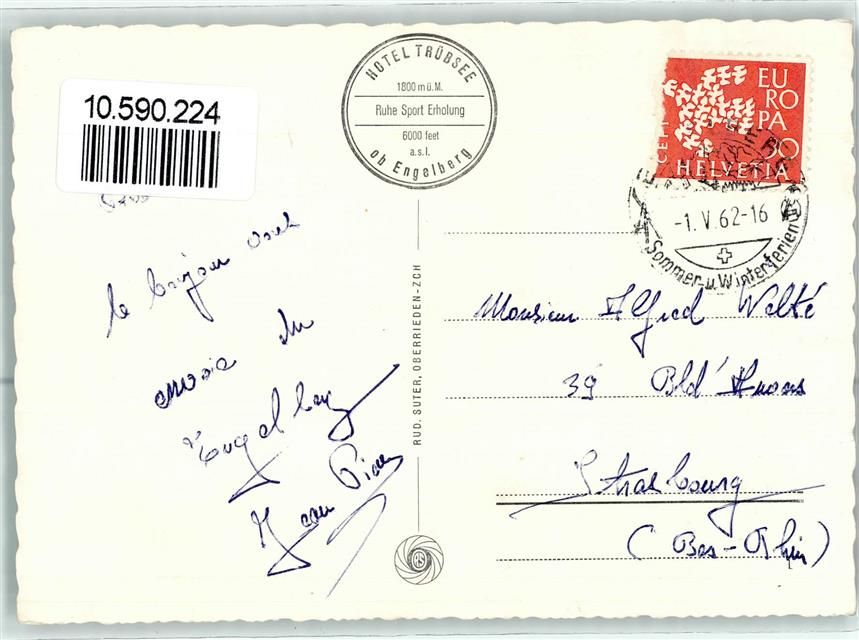 10.590.224
HOTEL TRÜBSEE
1800 m ü. M.
Ruhe Sport Erholung
6000 feet
a.s.l.
ob Engelberg
EU
RO
PA
CEPT
50
HELVETIA
-1.V.62-16
Sommer- u. Winterferien
le bonjour vous
envoie du
Engelberg
Jean Pierre
RUD. SUTER, OBERRIEDEN-ZCH
Monsieur Alfred Welté
39 Bld
Strasbourg
(Bas-Rhin)